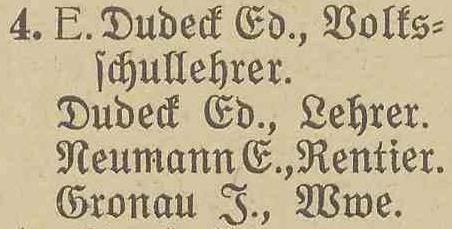 4. E. Dudeck Ed., Volks=
schullehrer.
Dudeck Ed., Lehrer.
Neumann E., Rentier.
Gronau J., Wwe.